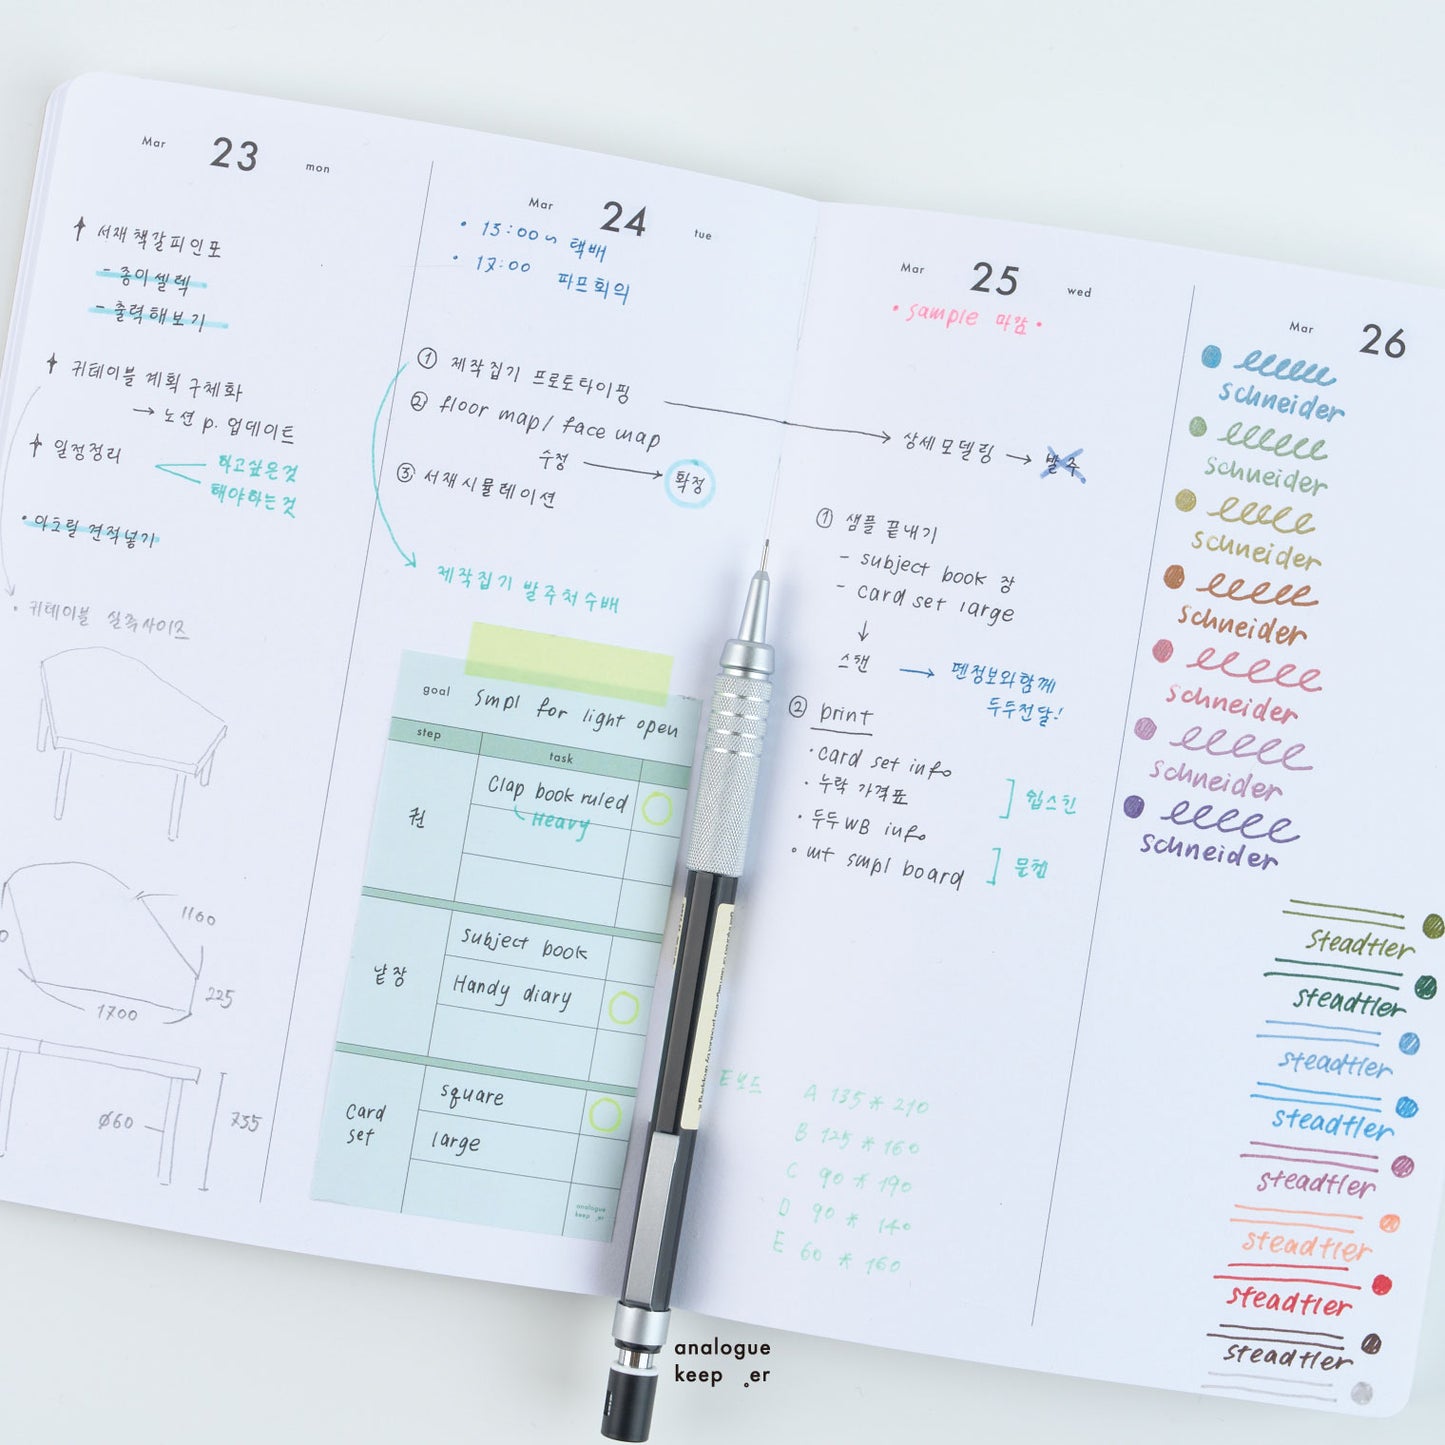 Mar 23 mon
서재 책갈피 인포
- 종이셀렉
- 출력해보기
귀테이블 계획 구체화
→ 노션 p. 업데이트
일정정리
하고싶은것
해야하는것
• 아크릴 견적넣기
• 귀테이블 실측사이즈
1160
225
1700
ø60
735
Mar 24 tue
• 15:00~ 택배
• 17:00 파프회의
① 제작집기 프로토타이핑
② floor map/ face map
수정 → 확정
③ 서재시뮬레이션
제작집기 발주처 수배
goal smpl for light open
step task
권
Clap book ruled
Heavy
낱장
subject book
Handy diary
card set
square
large
analogue
keep er
Mar 25 wed
• sample 마감 •
상세모델링 → 발주
① 샘플 끝내기
- subject book 장
- card set large
↓
스캔 → 펜정보와함께
두두전달!
② print
• card set info
• 누락 가격표
] 윕스킨
• 두두WB info
• mt smpl board
] 문켄
E보드
A 135 * 210
B 125 * 160
C 90 * 190
D 90 * 140
E 60 * 160
Mar 26
schneider
schneider
schneider
schneider
schneider
schneider
schneider
steadtler
steadtler
steadtler
steadtler
steadtler
steadtler
steadtler
steadtler
analogue
keep er